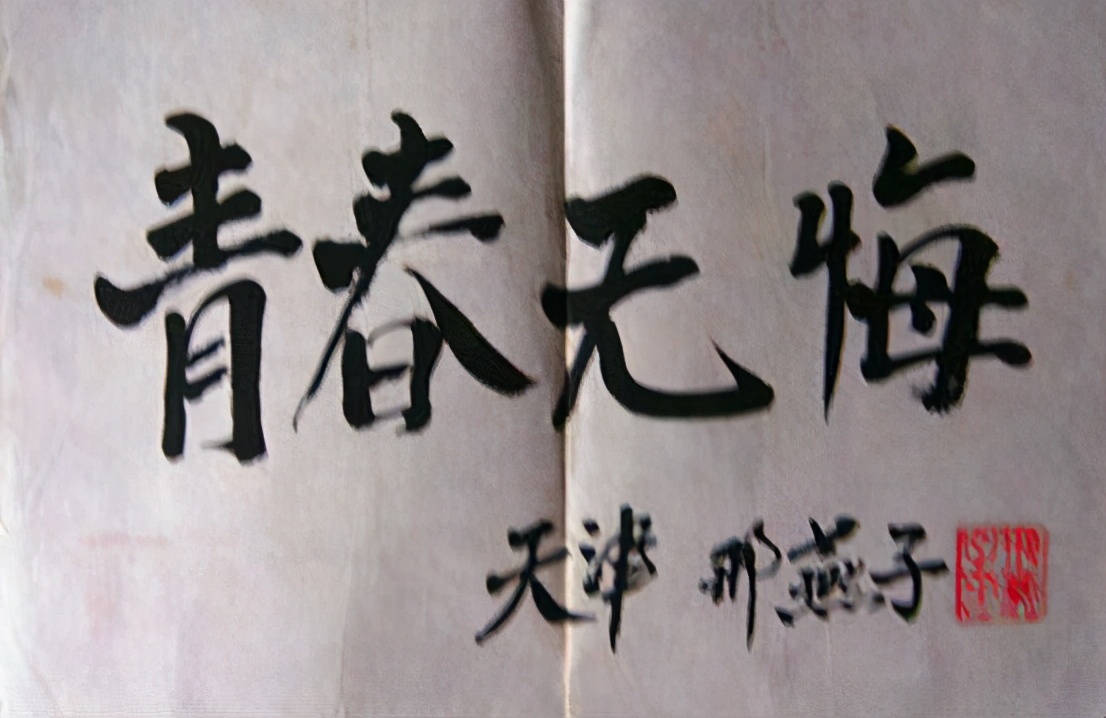 青春无悔
天津 邢燕子